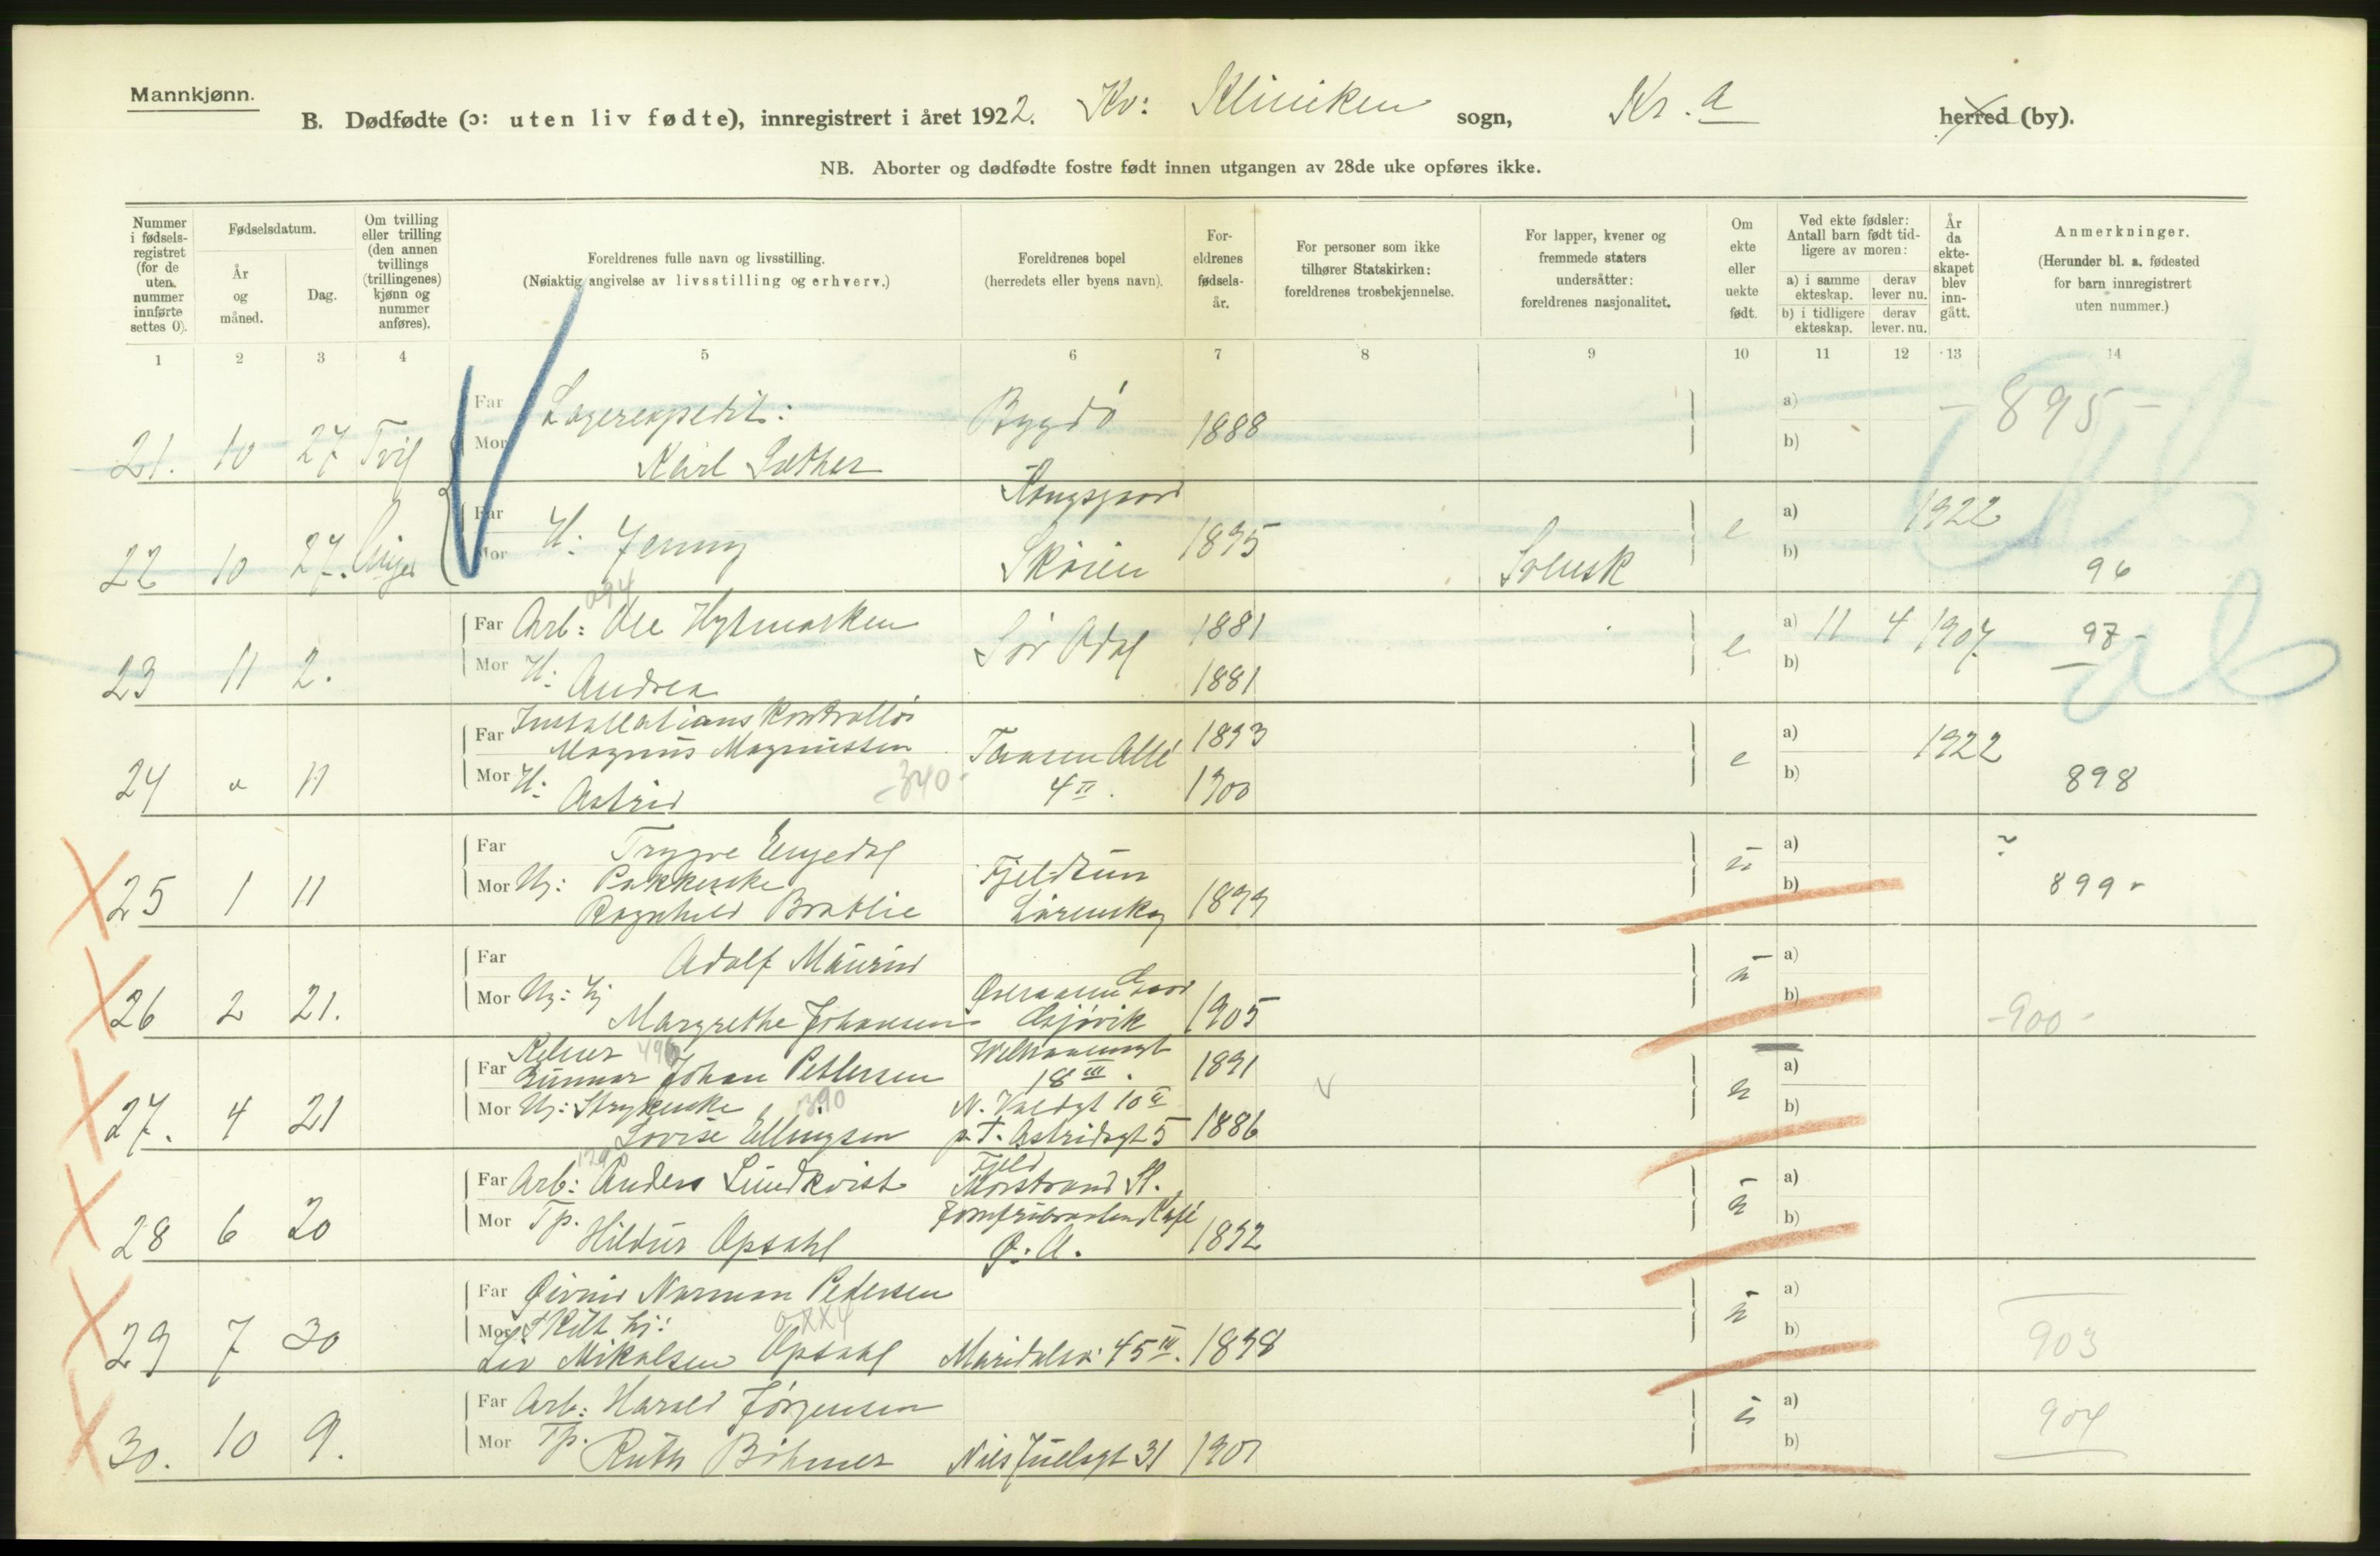 Mannkjønn.
B. Dødfødte (ɔ: uten liv fødte), innregistrert i året 1922. Kv: Kliniken sogn, Kr.a herred (by).
NB. Aborter og dødfødte fostre født innen utgangen av 28de uke opføres ikke.
Nummer i fødsels-registret (for de uten nummer innførte settes 0).
Fødselsdatum.
År og måned.
Dag.
Om tvilling eller trilling (den annen tvillings (trillingenes) kjønn og nummer anføres).
Foreldrenes fulle navn og livsstilling.
(Nøiaktig angivelse av livsstilling og erhverv.)
Foreldrenes bopel
(herredets eller byens navn).
For-eldrenes fødsels-år.
For personer som ikke tilhører Statskirken: foreldrenes trosbekjennelse.
For lapper, kvener og fremmede staters undersåtter: foreldrenes nasjonalitet.
Om ekte eller uekte født.
Ved ekte fødsler: Antall barn født tid-ligere av moren:
a) i samme ekteskap. derav lever nu.
b) i tidligere ekteskap. derav lever nu.
År da ekte-skapet blev inn-gått.
Anmerkninger.
(Herunder bl. a. fødested for barn innregistrert uten nummer.)
1 2 3 4 5 6 7 8 9 10 11 12 13 14
Far Lagerekspedit: Bygdö a) - 895 -
21. 10 27 Tvil Mor Karl Sæther 1888 b)
Kongsgaard
Far H: Jenny 1895 e a) 1922
22 10 27. Mor Skøien Svensk b) 96
094
Far Arb: Ole Hytmarken Sör Odal 1881 e a) 11 4 1907. 97 -
23 11 2. Mor H: Andrea 1881 b)
Far Installations kontrollör
Magnus Magnussen Taasen Allé 1893 e a) 1922
24 11 Mor H: Astrid - 340 - 4 II. 1900 b) 898
Far Trygve Engedal ü a)
25 1 11 Mor Ug: Pakkerske Fjeldtun b) 899
Ragnhild Bratlie Lörenskog 1899
Far Adolf Maurud ü a)
26 2 21. Mor Ug: hj b)
Margrethe Johansen Gjövik 1905 - 900 -
Kelner 496
Far Gunnar Johan Pettersen 18 III. 1891 v a)
27. 4 21 Mor Ug: Strykerske 390 N. Voldgt 10 II b)
Lovise Ellingsen p.t. Astridsgt 5 1886
Fjeld
Far Arb: Anders Lundkvist St. ü a)
28 6 20 Mor Tp. Kafé b)
Hildur Opsahl Ø. A. 1892
Far Øivind Norman Pedersen ü a)
29 7 30 Mor hj: b) 903
Liv Mikalsen Opsahl Maridalsv: 45 III. 1898
Far Arb: Harald Jörgensen ü a) 904
30. 10 9. Mor Tp. b)
Ruth Böhmer Niels Juelsgt 31 1901